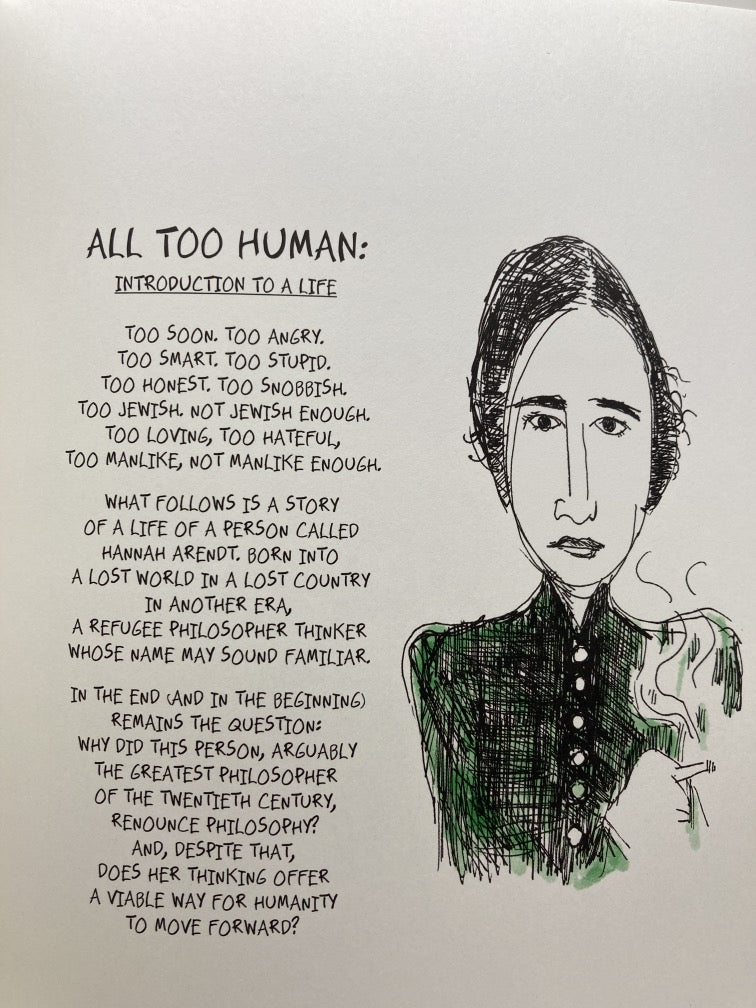 ALL TOO HUMAN:
INTRODUCTION TO A LIFE
TOO SOON. TOO ANGRY.
TOO SMART. TOO STUPID.
TOO HONEST. TOO SNOBBISH.
TOO JEWISH. NOT JEWISH ENOUGH.
TOO LOVING, TOO HATEFUL,
TOO MANLIKE, NOT MANLIKE ENOUGH.
WHAT FOLLOWS IS A STORY
OF A LIFE OF A PERSON CALLED
HANNAH ARENDT. BORN INTO
A LOST WORLD IN A LOST COUNTRY
IN ANOTHER ERA,
A REFUGEE PHILOSOPHER THINKER
WHOSE NAME MAY SOUND FAMILIAR.
IN THE END (AND IN THE BEGINNING)
REMAINS THE QUESTION:
WHY DID THIS PERSON, ARGUABLY
THE GREATEST PHILOSOPHER
OF THE TWENTIETH CENTURY,
RENOUNCE PHILOSOPHY?
AND, DESPITE THAT,
DOES HER THINKING OFFER
A VIABLE WAY FOR HUMANITY
TO MOVE FORWARD?